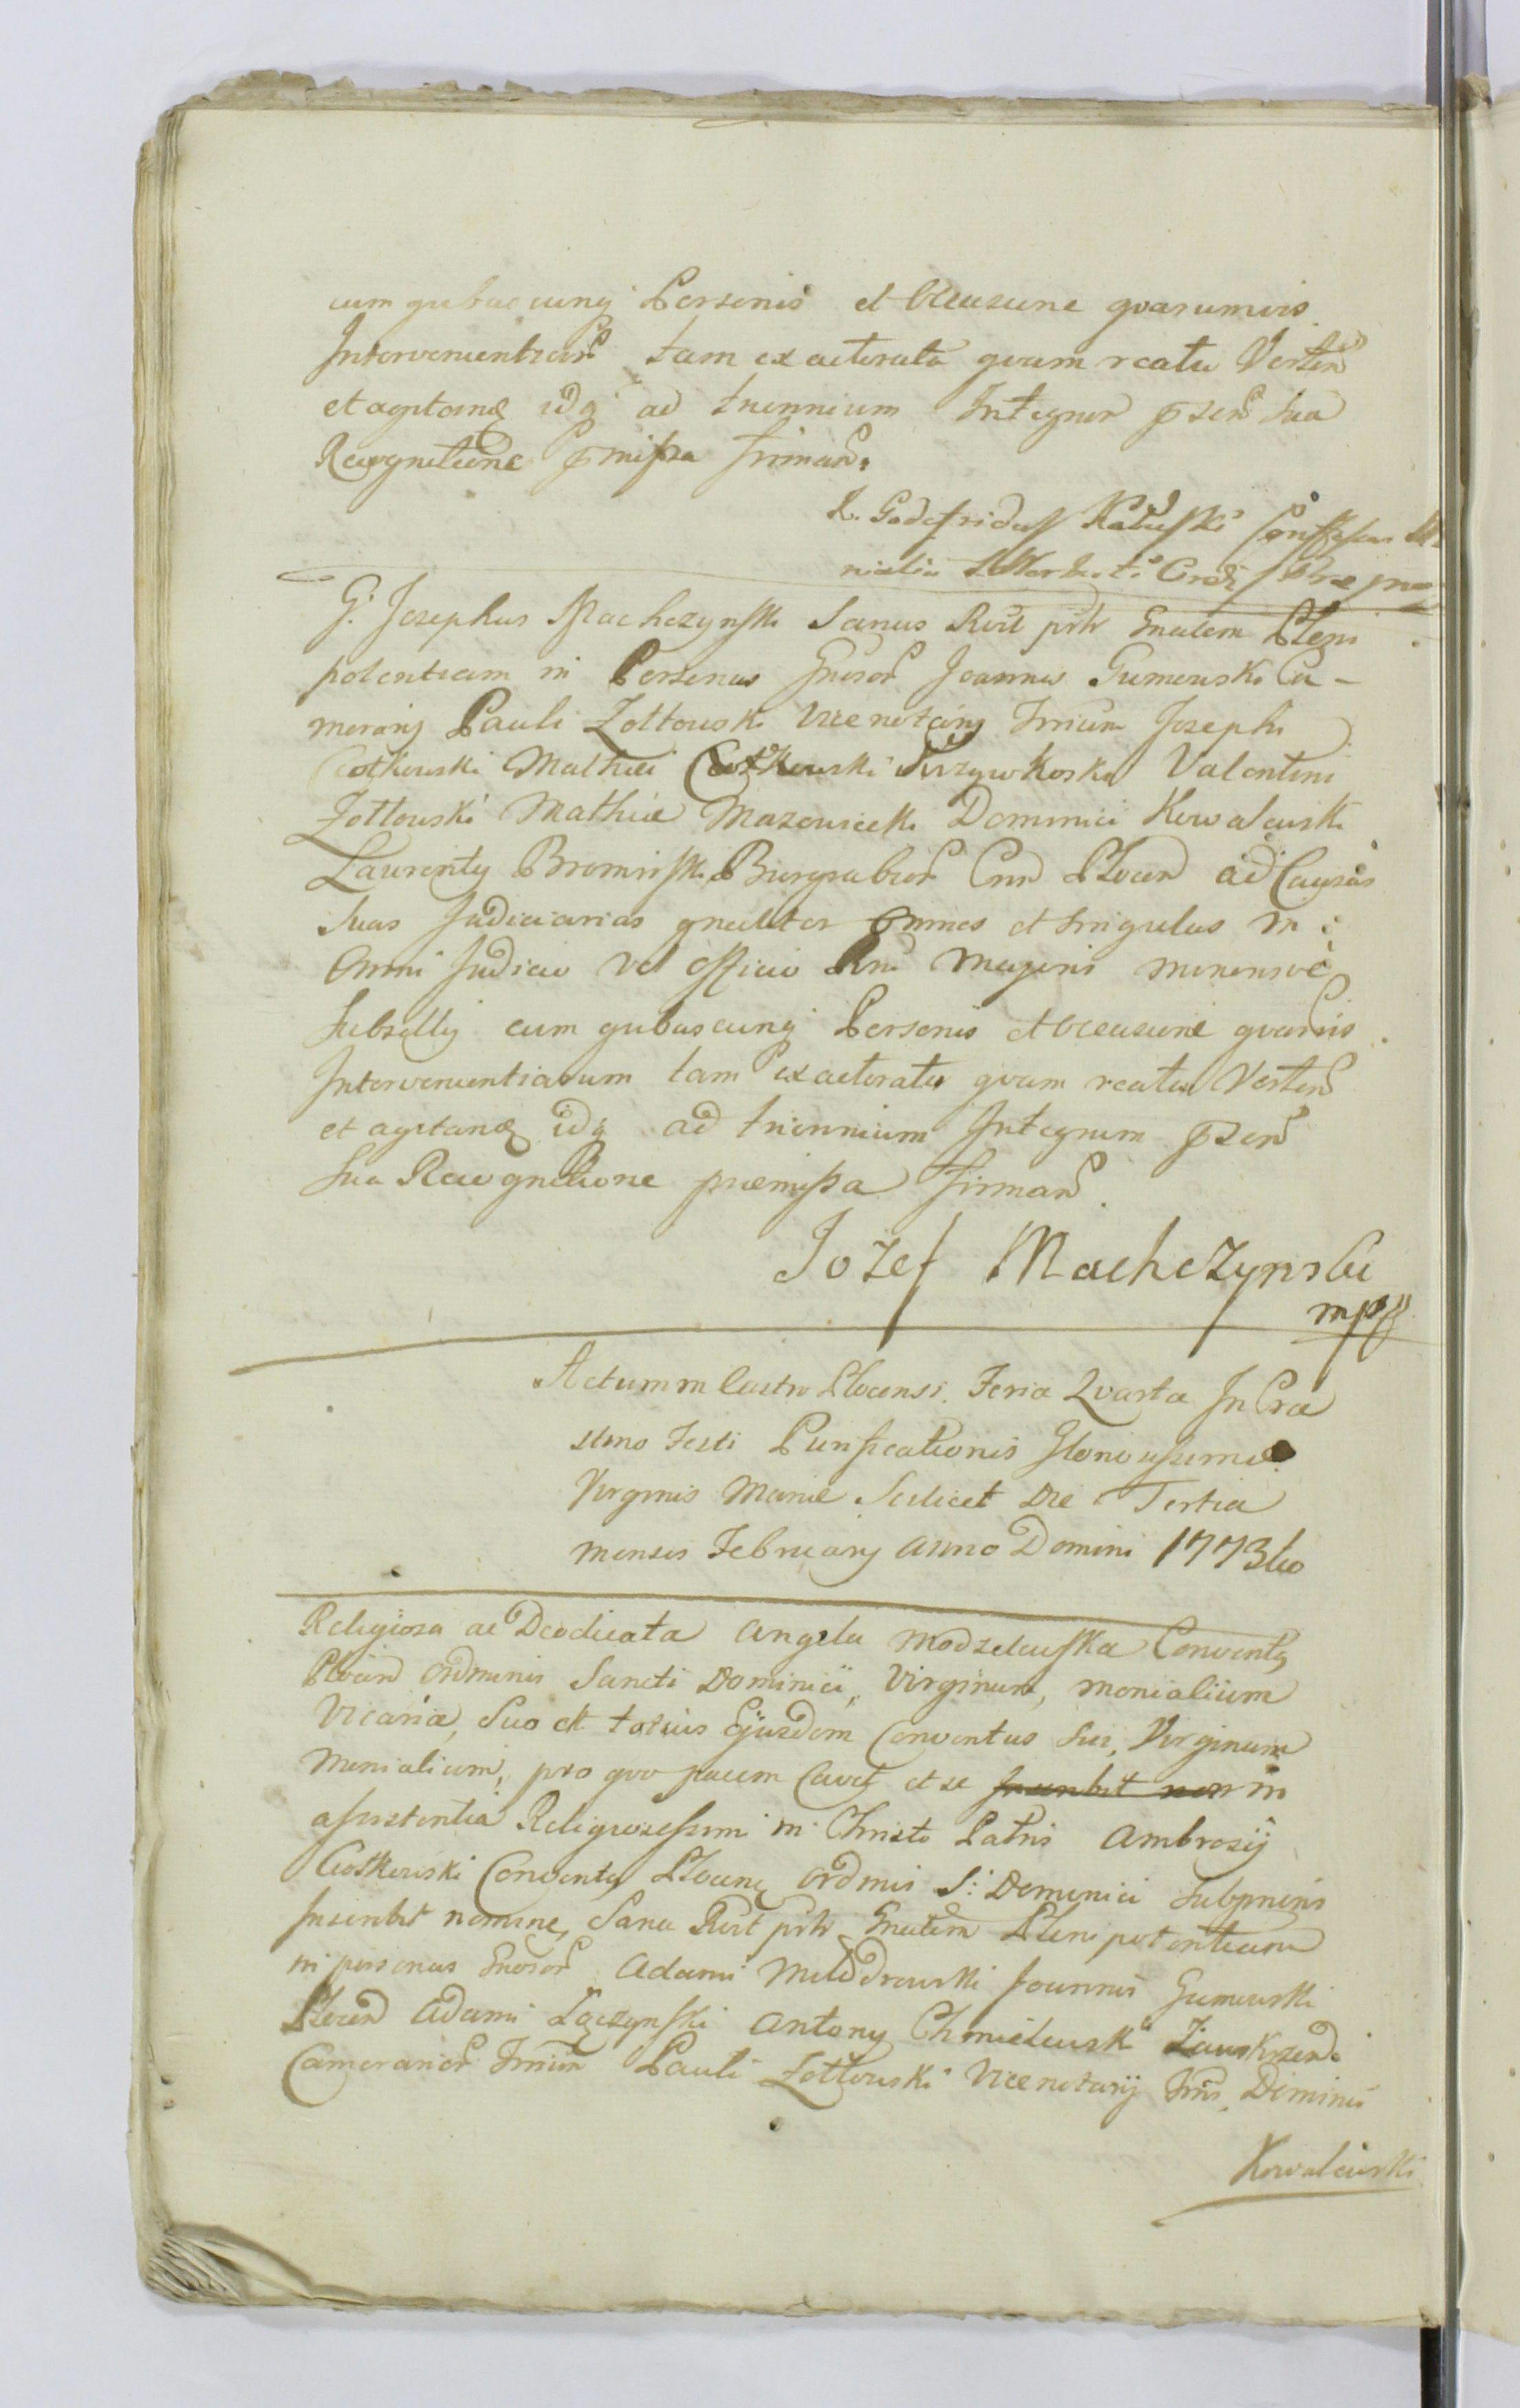 cum qubuscunq Personis et occasione quarumvis
Intervenientiarũ tam ex actoratu quam reatu Verteñ
et agitanđ idq ad triennium Integrum p̄zeñ sua
Recognitione p̄missa firmañ.
X. Godefridus
G. Josephus Machczynski Sanus Rvit prtr Gnalem Pleni
potentiam in Personas Gnosoř Joannis Gumowski Ca-
merarij Pauli Zołtowski Vicenotarij Trium Josephi
Ciotkowski Mathiæ Ciotkowski Valentini
Zołtowski Mathiæ Mazowiecki Dominici Kowalewski
Laurentij Bromirski Burgrabioř Cnři Płoceñ ad Causas
suas Judiciarias gnaliter omnes et singulas in
Omni Judicio vel officio Rni Majoris minorisve
Subsellij cum qubuscunq Personis et occasione quarvis
Intervenientiarum tam ex actoratu quam reatu Verteñ
et agitanđ idq ad triennium Integrum p̄zeñ
Sua Recognitione præmissa firmañ.
Jozef Machczynski
mpp
Actum in Castro Plocensi Feria Quarta In Cra
stino Festi Purificationis Gloriosissimæ
Virginis Mariæ Scilicet Die Tertia
mensis February Anno Domini 1773tio
Religiosa ac Deodicata Angela Modzelewska Conventus
Płoceñ Ordinis Sancti Dominici, Virginum, monialium
Vicaria, Suo et totius Ejusdem Conventus sui, Virginum
Monialium, pro quo pacem Cavet et se Inscribit non in
assistentia Religiosissimi in Christo Patris Ambrosij
Ciotkowski Conventus Płoceñ Ordinis S: Dominici Subprioris
Inscribit nomine, Sana Rvit prtr Gnalem Plenipotentiam
in personas Gnosoř Adami Młodrowski Joannis Gumowski
Płoceñ Adami Łączynski Antony Chmielewski Zawskrzeñ
Camerarioř Trium Pauli Zołtowski Vicenotarij Trris, Dominici
Kowalewski